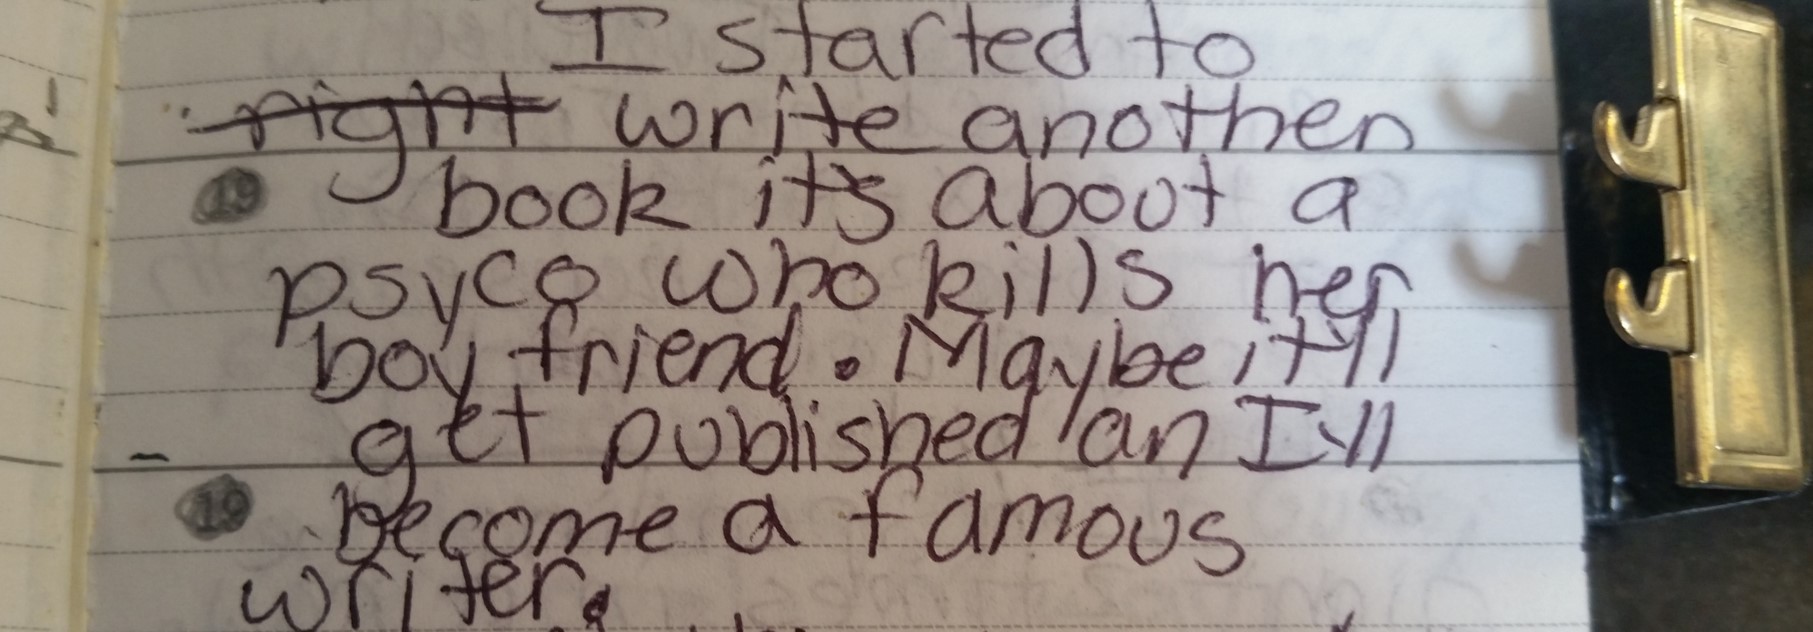 I started to
right write another
19 book it's about a
psyco who kills her
boy friend. Maybe it'll
get published an I'll
19 become a famous
writer.